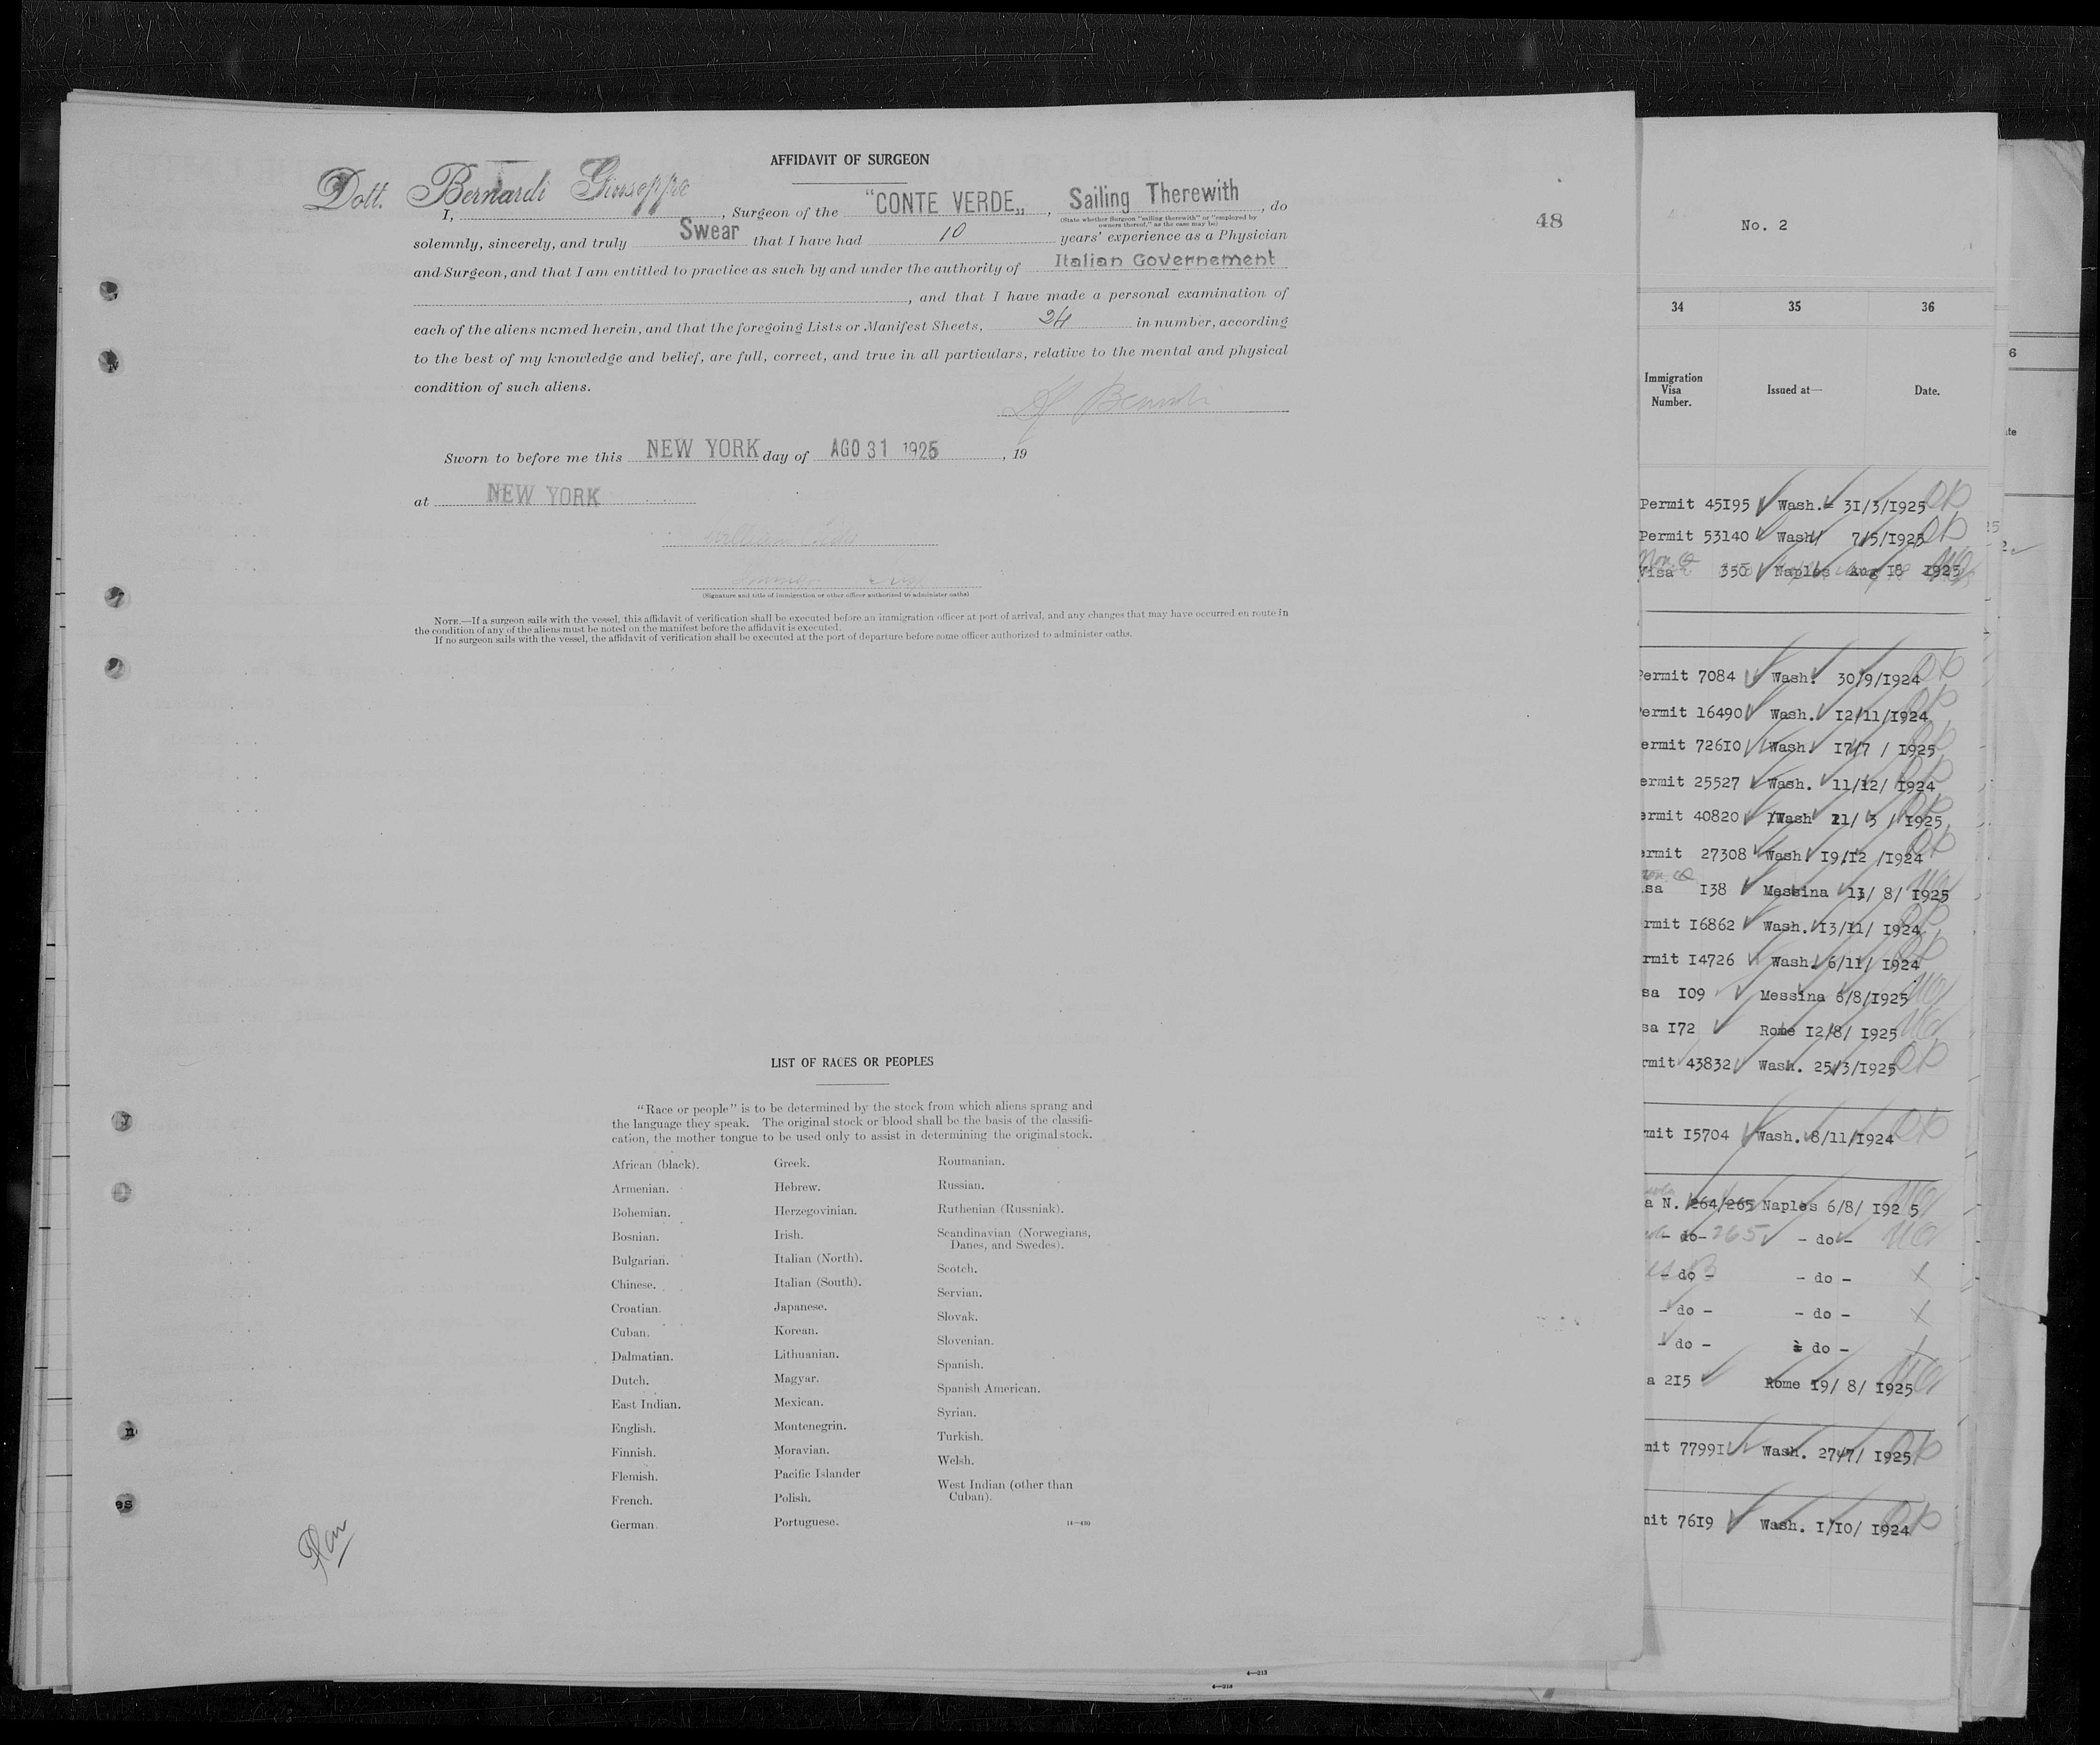 AFFIDAVIT OF SURGEON
Dott. Bernardi Giuseppe
I, , Surgeon of the "CONTE VERDE„ , Sailing Therewith , do
(State whether Surgeon "sailing therewith" or "employed by
owners thereof," as the case may be)
solemnly, sincerely, and truly Swear that I have had 10 years' experience as a Physician
and Surgeon, and that I am entitled to practice as such by and under the authority of Italian Governement
, and that I have made a personal examination of
each of the aliens named herein, and that the foregoing Lists or Manifest Sheets, 24 in number, according
to the best of my knowledge and belief, are full, correct, and true in all particulars, relative to the mental and physical
condition of such aliens.
Sworn to before me this NEW YORK day of AGO 31 1925 , 19
at NEW YORK
(Signature and title of immigration or other officer authorized to administer oaths)
NOTE.—If a surgeon sails with the vessel, this affidavit of verification shall be executed before an immigration officer at port of arrival, and any changes that may have occurred en route in
the condition of any of the aliens must be noted on the manifest before the affidavit is executed.
If no surgeon sails with the vessel, the affidavit of verification shall be executed at the port of departure before some officer authorized to administer oaths.
LIST OF RACES OR PEOPLES
"Race or people" is to be determined by the stock from which aliens sprang and
the language they speak. The original stock or blood shall be the basis of the classifi-
cation, the mother tongue to be used only to assist in determining the original stock.
African (black).
Armenian.
Bohemian.
Bosnian.
Bulgarian.
Chinese.
Croatian.
Cuban.
Dalmatian.
Dutch.
East Indian.
English.
Finnish.
Flemish.
French.
German.
Greek.
Hebrew.
Herzegovinian.
Irish.
Italian (North).
Italian (South).
Japanese.
Korean.
Lithuanian.
Magyar.
Mexican.
Montenegrin.
Moravian.
Pacific Islander
Polish.
Portuguese.
Roumanian.
Russian.
Ruthenian (Russniak).
Scandinavian (Norwegians,
Danes, and Swedes).
Scotch.
Servian.
Slovak.
Slovenian.
Spanish.
Spanish American.
Syrian.
Turkish.
Welsh.
West Indian (other than
Cuban).
14—430
48
No. 2
34 35 36
Immigration
Visa
Number.
Issued at—
Date.
Permit 45195 Wash. 31/3/1925
Permit 53140 Wash 7/5/1925
Visa 350 Naples Aug 18 1925
Permit 7084 Wash. 30/9/1924
ermit 16490 Wash. 12/11/1924
ermit 72610 Wash. 17/7 / 1925
ermit 25527 Wash. 11/12/ 1924
ermit 40820 Wash 21/ 3 / 1925
ermit 27308 Wash. 19/12 /1924
sa 138 Messina 13/ 8/ 1925
rmit 16862 Wash. 13/11/ 1924
rmit 14726 Wash. 6/11/ 1924
sa 109 Messina 6/8/1925
sa 172 Rome 12/8/ 1925
rmit 43832 Wash. 25/3/1925
mit 15704 Wash. 8/11/1924
a N. 264/265 Naples 6/8/ 192 5
- do- 265 - do -
- do - - do -
- do - - do -
- do - do -
a 215 Rome 19/ 8/ 1925
mit 77991 Wash. 27/7/ 1925
mit 7619 Wash. 1/10/ 1924
4—213